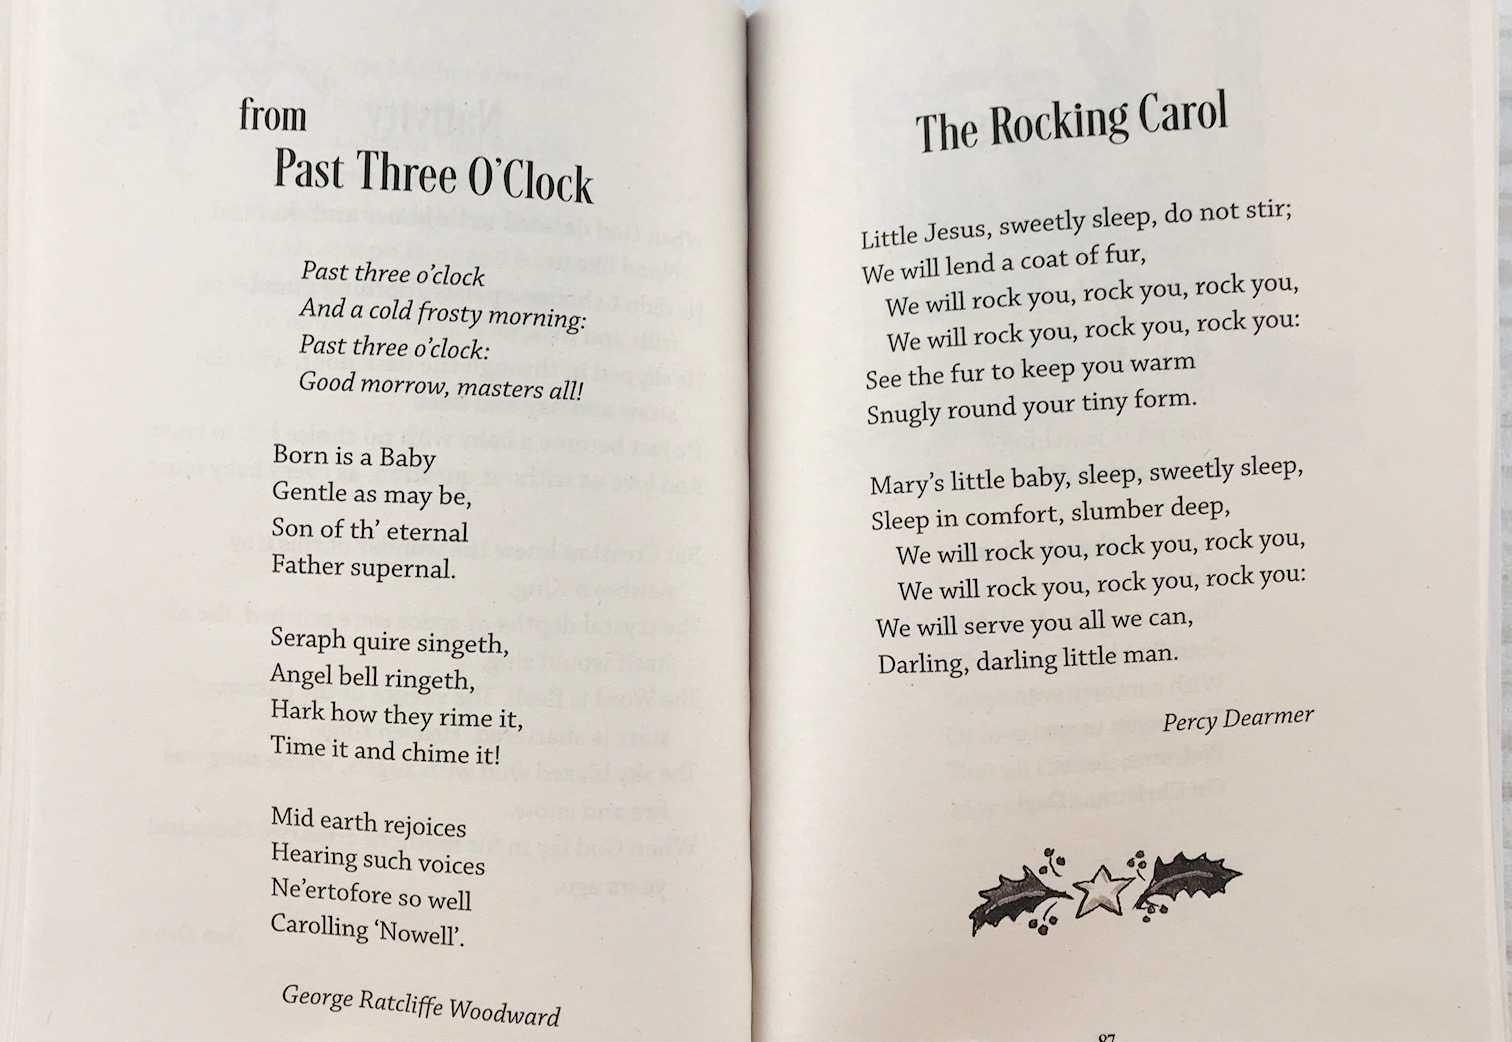 from
Past Three O’Clock
Past three o’clock
And a cold frosty morning:
Past three o’clock:
Good morrow, masters all!
Born is a Baby
Gentle as may be,
Son of th’ eternal
Father supernal.
Seraph quire singeth,
Angel bell ringeth,
Hark how they rime it,
Time it and chime it!
Mid earth rejoices
Hearing such voices
Ne’ertofore so well
Carolling ‘Nowell’.
George Ratcliffe Woodward
The Rocking Carol
Little Jesus, sweetly sleep, do not stir;
We will lend a coat of fur,
We will rock you, rock you, rock you,
We will rock you, rock you, rock you:
See the fur to keep you warm
Snugly round your tiny form.
Mary’s little baby, sleep, sweetly sleep,
Sleep in comfort, slumber deep,
We will rock you, rock you, rock you,
We will rock you, rock you, rock you:
We will serve you all we can,
Darling, darling little man.
Percy Dearmer